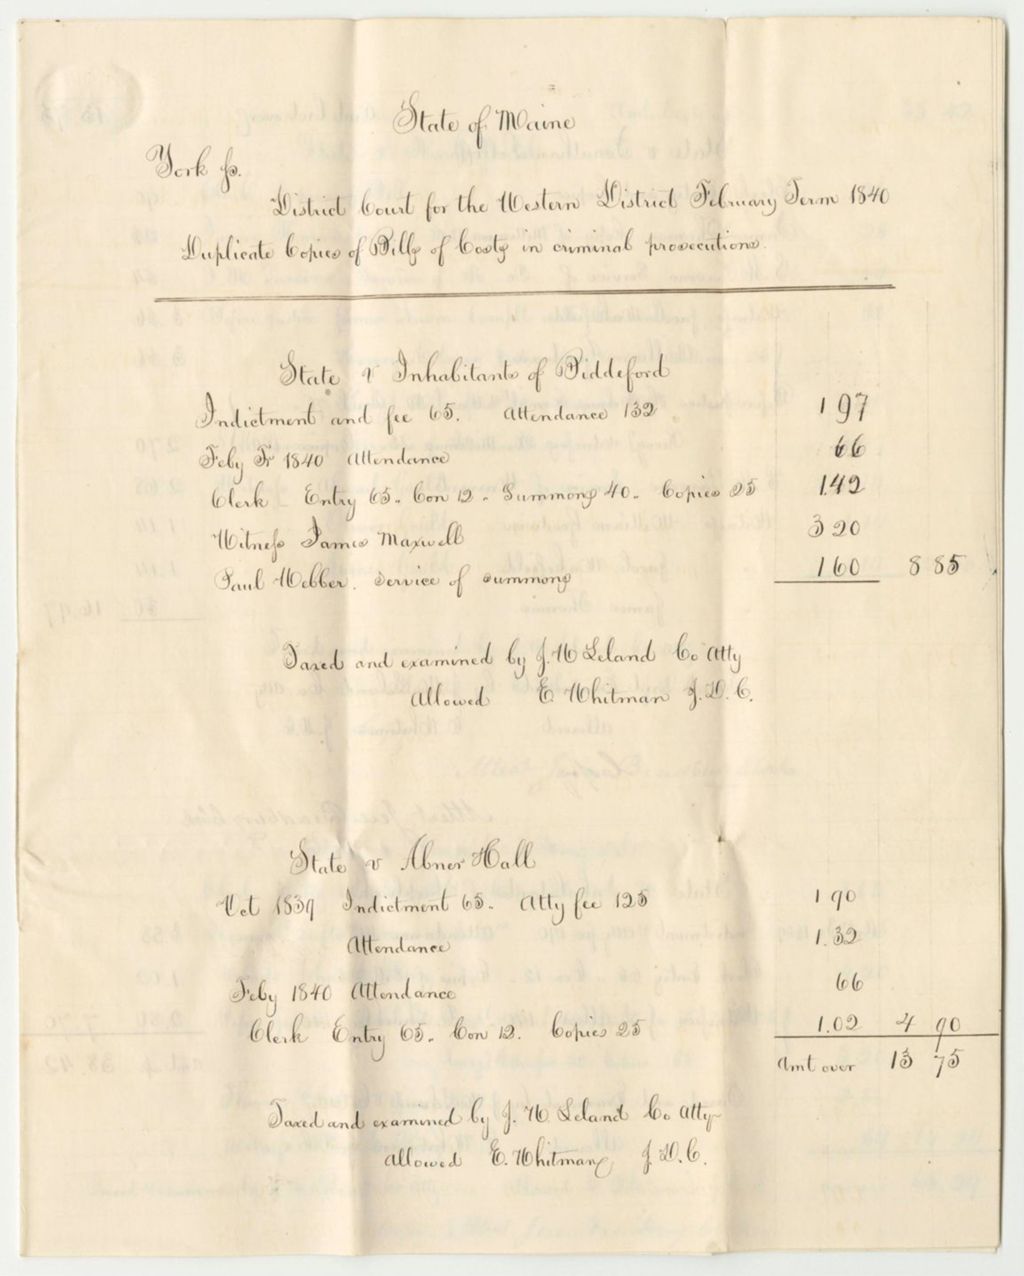 State of Maine
York ss.
District Court for the Western District February Term 1840
Duplicate Copies of Bills of Costs in criminal prosecutions.
State v Inhabitants of Biddeford
Indictment and fee 65. Attendance 132 1 97
Feby Tr 1840 Attendance 66
Clerk Entry 65. Con 12. Summons 40. Copies 25 1.42
Witness James Maxwell 3 20
Paul Webber. Service of summons 1 60 8 85
Taxed and examined by J. W Leland Co Atty
Allowed E. Whitman J. D. C.
State v Abner Hall
Oct 1839 Indictment 65. Atty fee 125 1 90
Attendance 1.32
Feby 1840 Attendance 66
Clerk Entry 65. Con 12. Copies 25 1.02 4 90
Amt over 13 75
Taxed and examined by J. W. Leland Co Atty
Allowed E. Whitman, J. D. C.